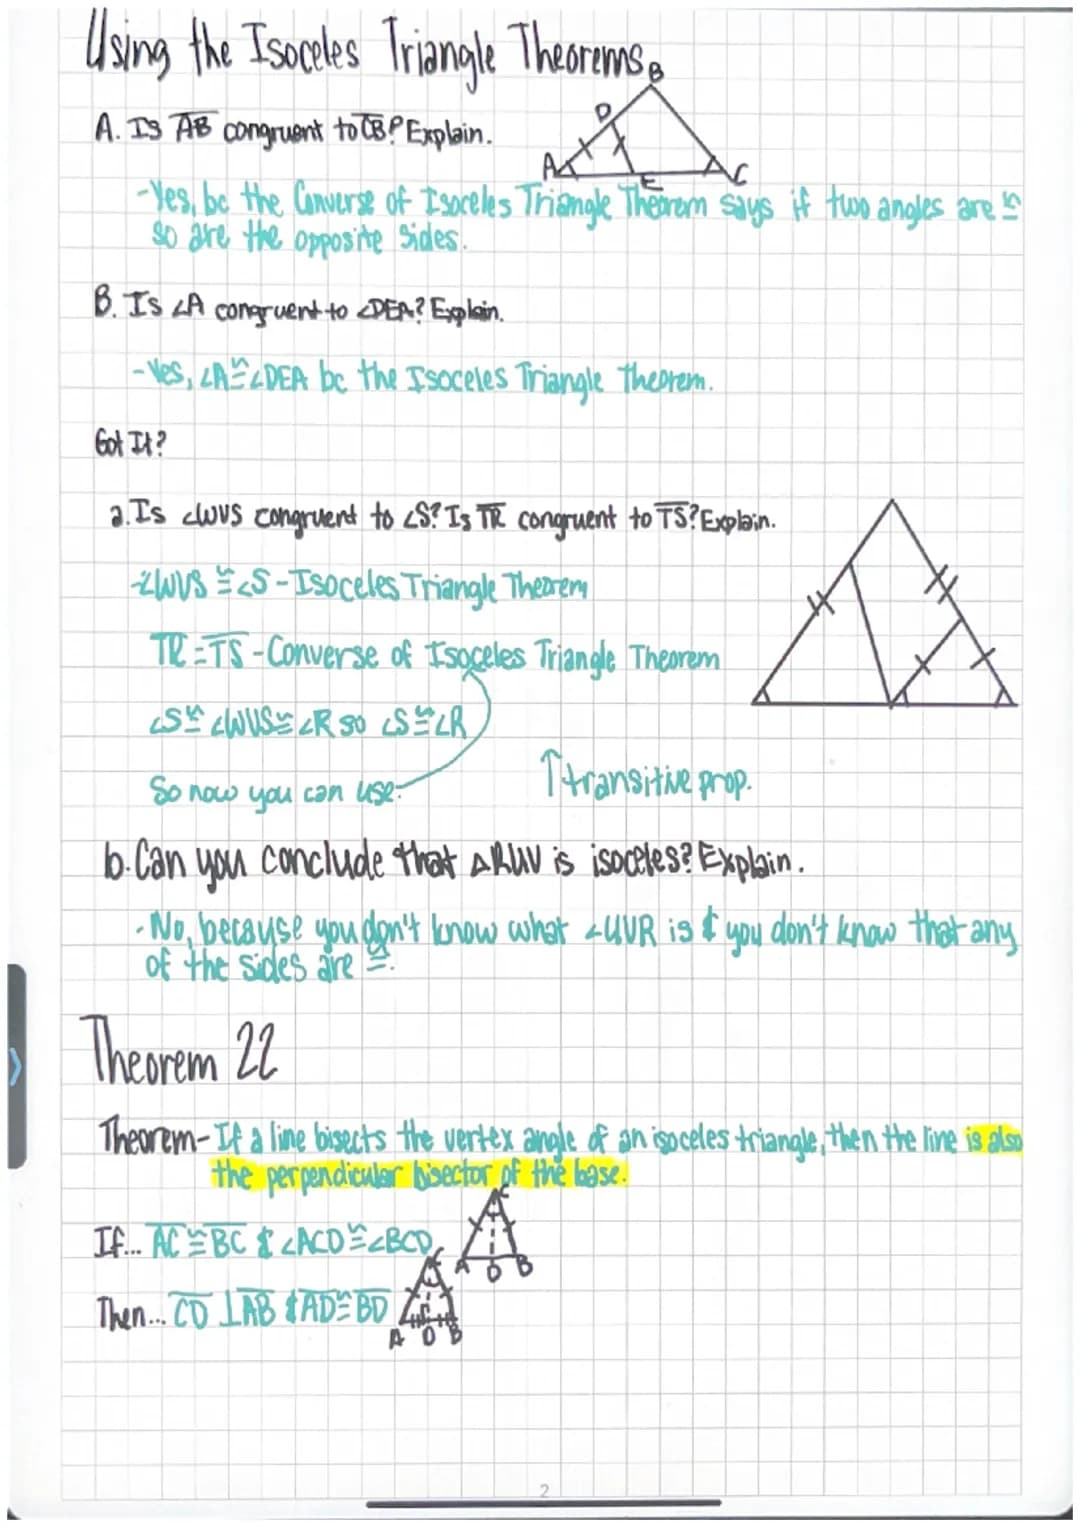 Using the Isoceles Triangle Theorems
B
A. Is AB congruent to CB? Explain.
D
A
E
C
-Yes, bc the Converse of Isoceles Triangle Theorem says if two angles are ≅
so are the opposite sides.
B. Is ∠A congruent to ∠DEA? Explain.
-Yes, ∠A≅∠DEA bc the Isoceles Triangle Theorem.
Got It?
a. Is ∠WVS congruent to ∠S? Is TR congruent to TS? Explain.
-∠WVS ≅ ∠S - Isoceles Triangle Theorem
TR = TS - Converse of Isoceles Triangle Theorem
∠S ≅ ∠WVS ≅ ∠R so ∠S ≅ ∠R
So now you can use
↑transitive prop.
b. Can you conclude that △RUV is isoceles? Explain.
- No, because you don't know what ∠UVR is & you don't know that any
of the sides are ≅.
Theorem 22
Theorem- If a line bisects the vertex angle of an isoceles triangle, then the line is also
the perpendicular bisector of the base.
C
If... AC ≅ BC & ∠ACD ≅ ∠BCD
A D B
C
Then... CD ⊥ AB & AD ≅ BD
A D B
2